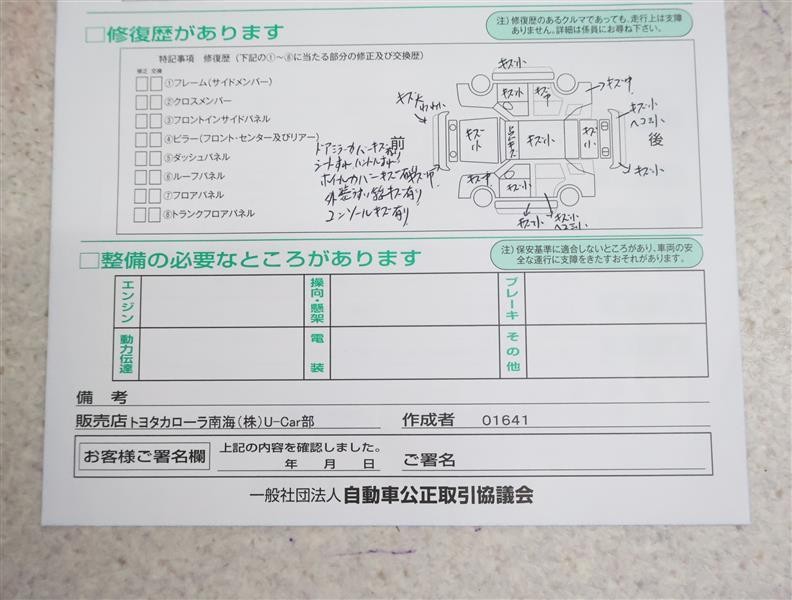 □修復歴があります
注）修復歴のあるクルマであっても、走行上は支障
ありません。詳細は係員にお尋ね下さい。
特記事項 修復歴（下記の①〜⑧に当たる部分の修正及び交換歴）
修正 交換
①フレーム（サイドメンバー）
②クロスメンバー
③フロントインサイドパネル
④ピラー（フロント・センター及びリアー）
⑤ダッシュパネル
⑥ルーフパネル
⑦フロアパネル
⑧トランクフロアパネル
ドアミラーカバーキズ有り
ホイルカバーキズ有り
コンソールキズ有り
前
後
キズ小
キズ小
キズ中
キズ小
キズ小
キズ小
キズ小
ヘコミ小
キズ小
キズ中
キズ小
キズ小
キズ小
ヘコミ小
□整備の必要なところがあります
注）保安基準に適合しないところがあり、車両の安
全な運行に支障をきたすおそれがあります。
エンジン
操向・懸架
ブレーキ
動力伝達
電装
その他
備考
販売店 トヨタカローラ南海（株）U-Car部
作成者 01641
お客様ご署名欄
上記の内容を確認しました。
年 月 日
ご署名
一般社団法人 自動車公正取引協議会